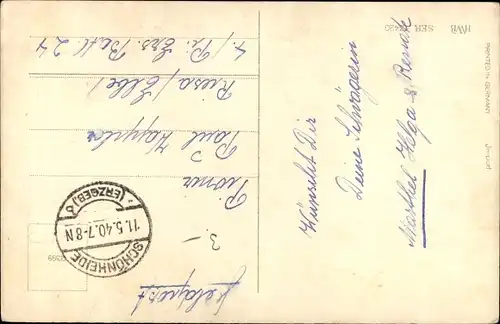 Wünscht Dir
Deine Schwägerin
Marthel Helga & Renate
Feldpost
3.–
Pionier
Paul Kappler
Riesa / Elbe /
4. / Pi. Ers. Batl. 24
SCHÖNHEIDE
11.5.40.7-8 N
(ERZGEB) d
HWB
SER
PRINTED IN GERMANY